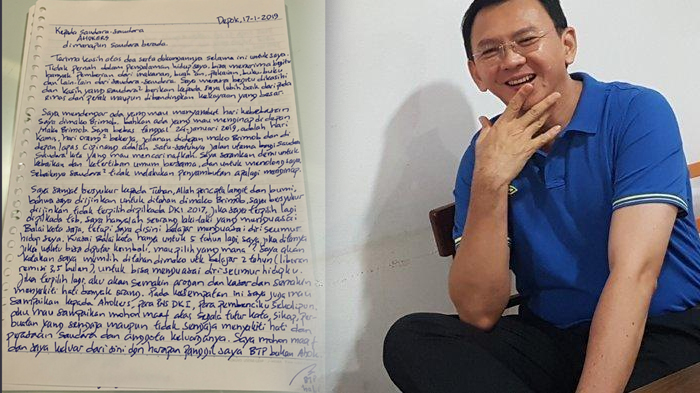 Depok, 17-1-2019
Kepada Saudara-saudara
AHOKERS
di manapun saudara berada.
Terima kasih atas doa serta dukungannya selama ini untuk saya.
Tidak pernah dalam pengalaman hidup saya, bisa menerima begitu
banyak pemberian dari makanan, buah²an, pakaian, buku-buku
dan lain-lain dari saudara-saudara. Saya merasa begitu dikasihi
dan kasih yang saudara² berikan kepada saya lebih baik dari pada
emas dan perak maupun dibandingkan kekayaan yang besar.
Saya mendengar ada yang mau menyambut hari kebebasan
saya dimako Brimob. bahkan ada yang mau menginap di depan
Mako Brimob. Saya bebas tanggal 24 januari 2019, adalah hari
Kamis, hari orang² bekerja, jalanan didepan mako Brimob dan di
depan lapas Cipinang adalah satu-satunya jalan utama bagi saudara
saudara kita yang mau mencari nafkah. Saya sarankan demi untuk
kebaikan dan ketertiban umum bersama, dan untuk menolong saya,
Sebaiknya saudara² tidak melakukan penyambutan apalagi menginap.
Saya sangat bersyukur kepada Tuhan, Allah pencipta langit dan bumi,
bahwa saya diijinkan untuk ditahan di mako Brimob. Saya bersyukur
diijinkan tidak terpilih di pilkada DKI 2017, jika saya terpilih lagi
di pilkada tsb, saya hanyalah seorang laki-laki yang menguasai
Balai kota saja, tetapi saya disini belajar menguasai diri seumur
hidup saya. Kuasai Balai kota hanya untuk 5 tahun lagi saja. jika ditanya
jika waktu bisa diputar kembali, mau pilih yang mana? Saya akan
katakan saya memilih ditahan di mako utk belajar 2 tahun (liburan
remisi 3,5 bulan), untuk bisa menguasai diri seumur hidupku.
Jika terpilih lagi, aku akan semakin arogan dan kasar dan semakin
menyakiti hati banyak orang. Pada kesempatan ini saya juga mau
sampaikan kepada Ahokers, para PNS DKI, para pembenciku sekalipun,
aku mau sampaikan mohon maaf atas segala tutur kata, sikap, per-
buatan yang sengaja maupun tidak sengaja menyakiti hati dan
perasaan saudara dan anggota keluarganya. Saya mohon maaf
dan saya keluar dari sini dgn harapan panggil saya BTP bukan Ahok
BTP